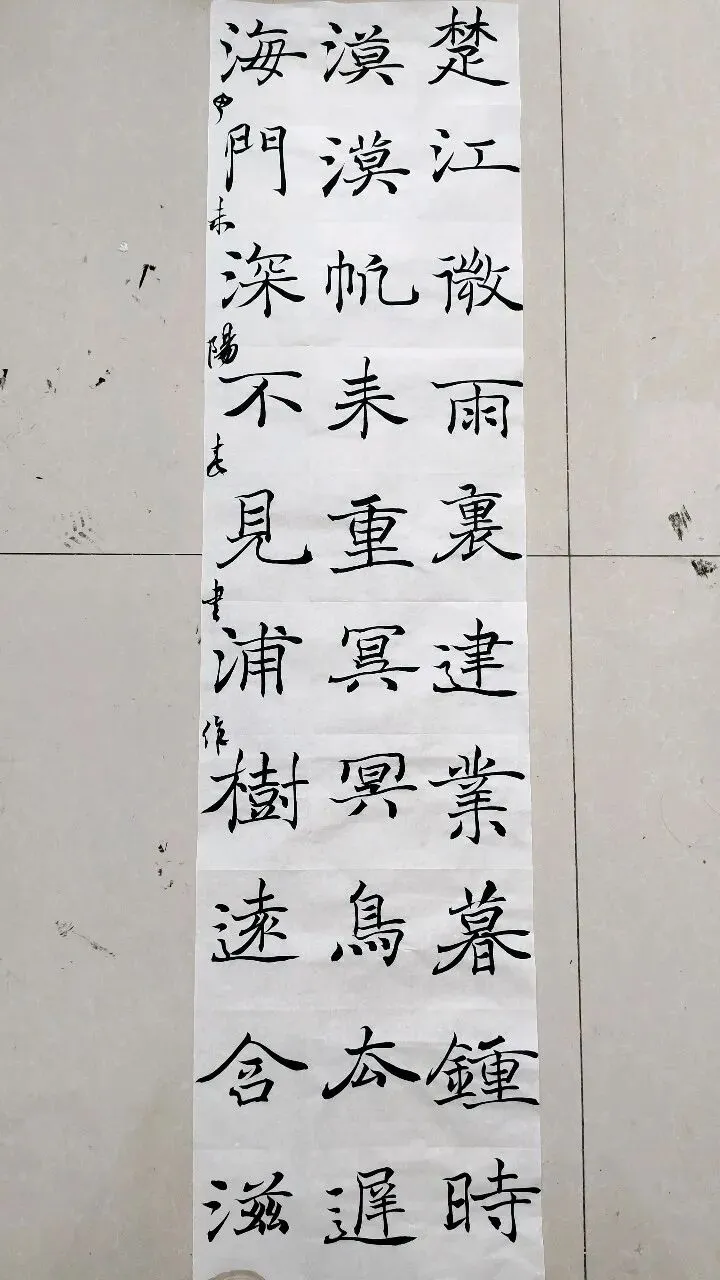 楚江微雨裏建業暮鍾時
漠漠帆来重冥冥鳥去遲
海門深不見浦樹遠含滋
未陽春書作